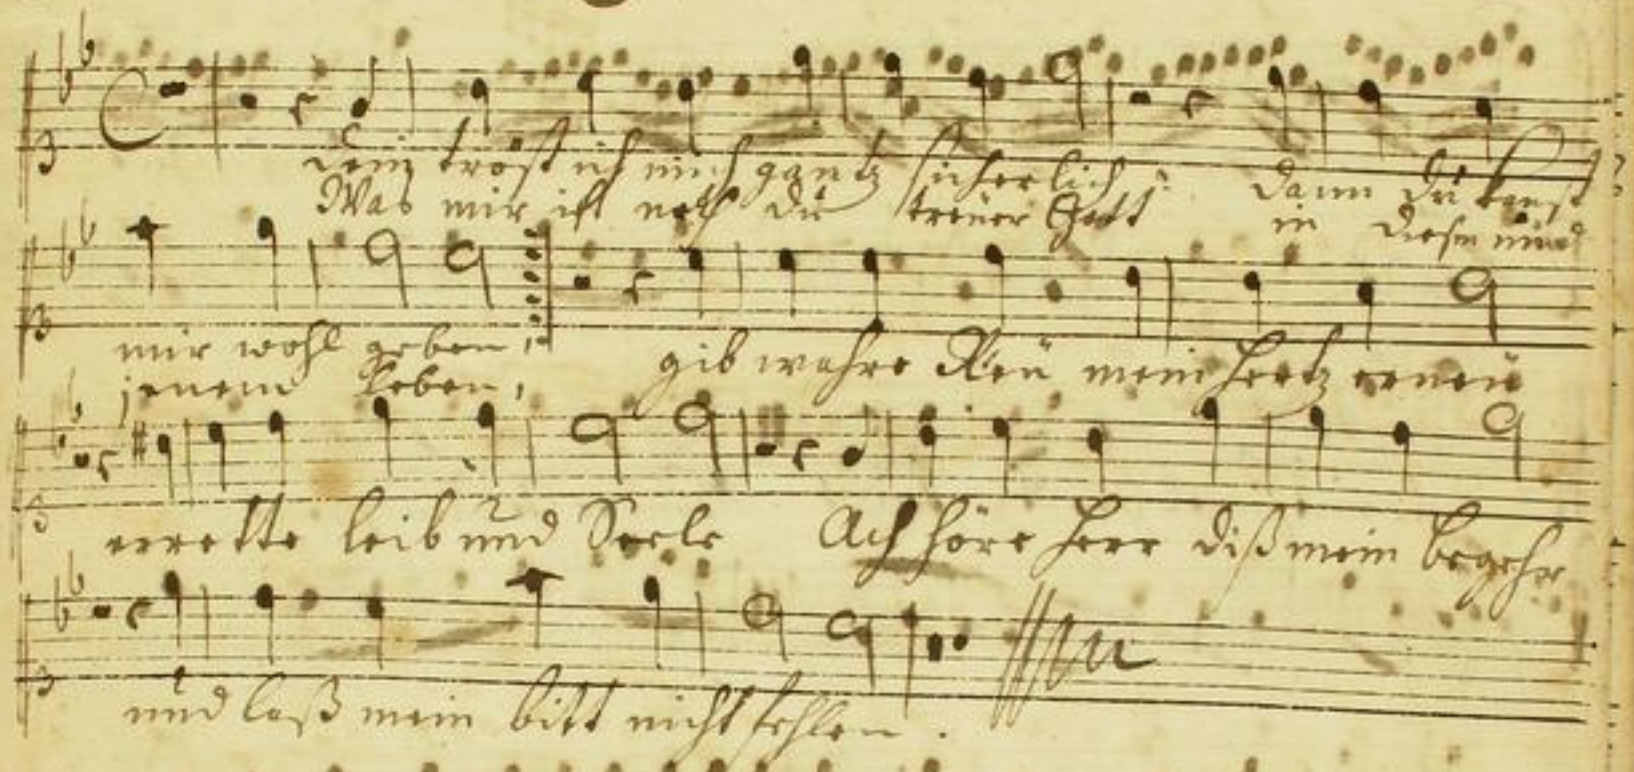 dein tröst ich mich gantz sicherlich : dann du kanst
Was mir ist noth du treuer Gott in diesem und
mir wohl geben,
jenem Leben,
gib wahre Reü mein Hertz erneü
errette leib und Seele Ach höre Herr diß mein begehr
und laß mein bitt nicht fehlen .